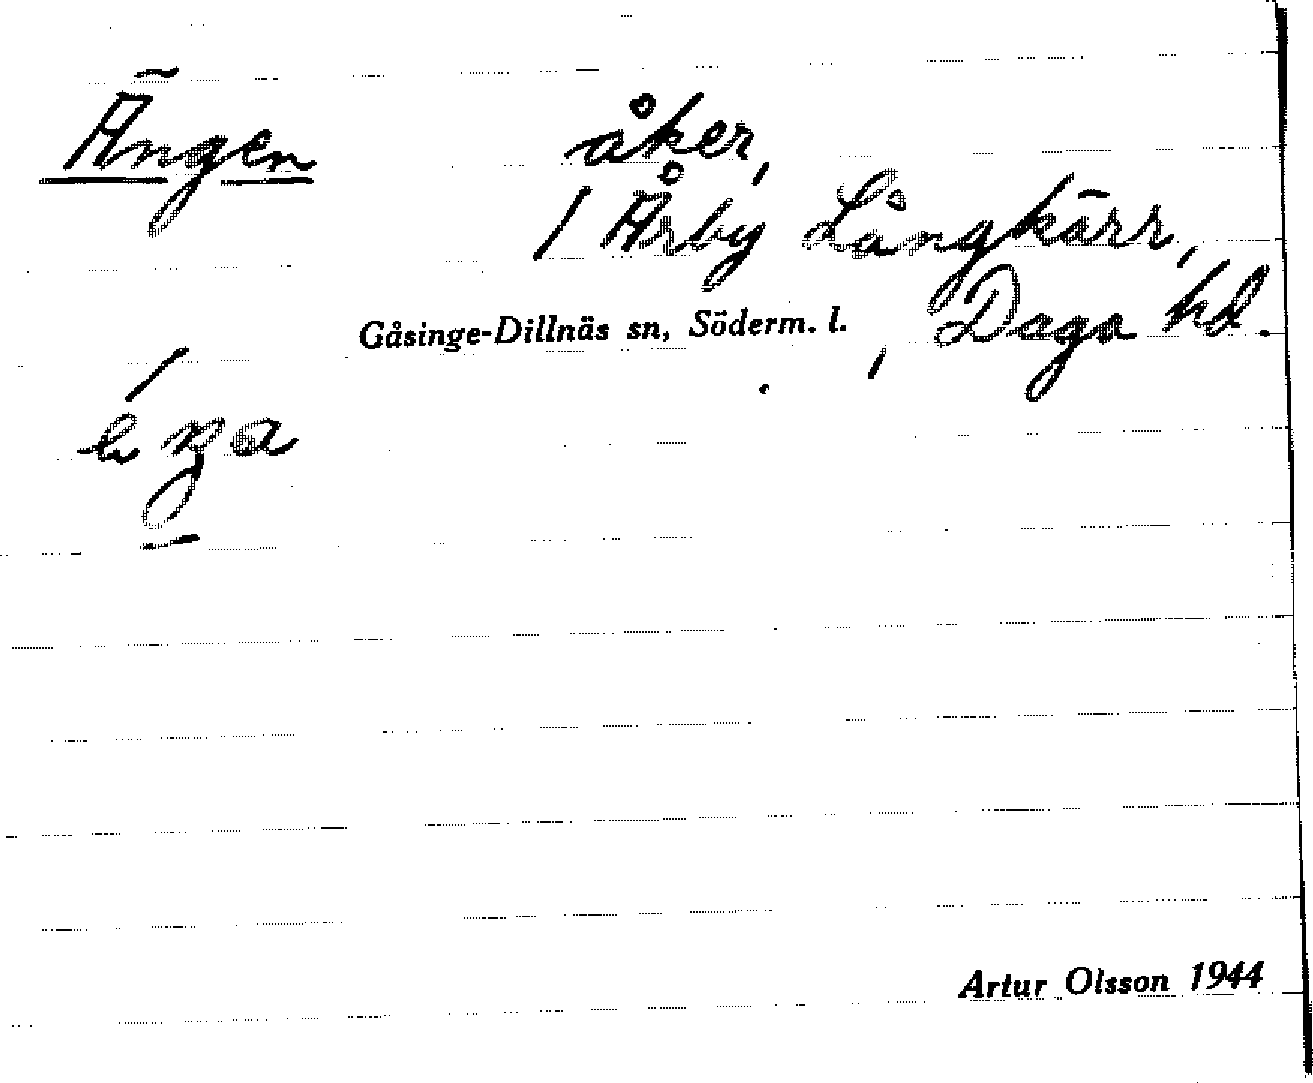 Ängen
åker,
/ Årby Långkärr,
Gåsinge-Dillnäs sn, Söderm. l., Daga hd.
Artur Olsson 1944